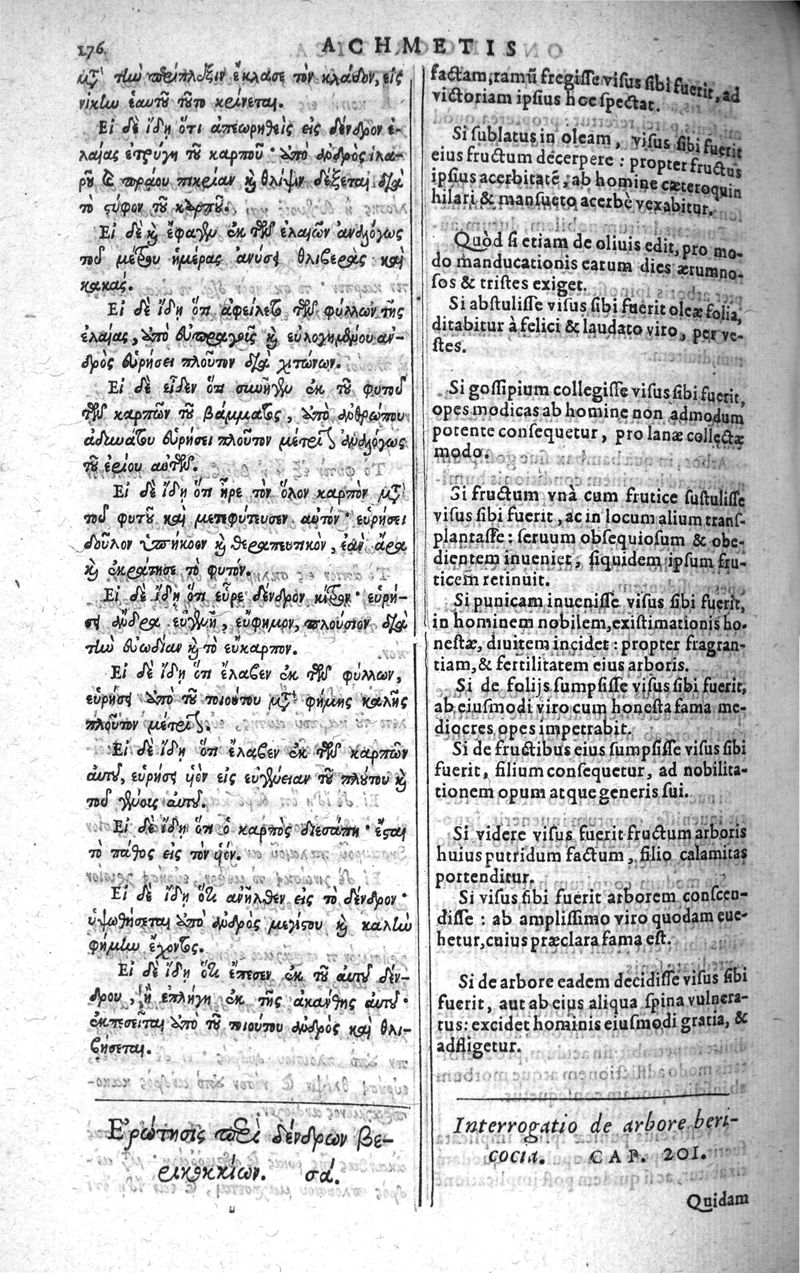 176
ACHMETIS
μετὰ τὴν περίπλεξιν ἔκλασε τὸν κλάδον, εἰς
νίκην ἑαυτοῦ τοῦτο κρίνεται.
Εἰ δὲ ἴδῃ ὅτι ἀπεωρηθεὶς εἰς δένδρον ἐ-
λαίας ἐτρύγη τοῦ καρποῦ· ὑπὸ ἀνδρὸς ἱλα-
ροῦ καὶ πράου πικρίαν καὶ θλίψιν δέξεται διὰ
τὸ στύφον τοῦ καρποῦ.
Εἰ δὲ καὶ ἔφαγεν ἐκ τῶν ἐλαιῶν ἀναλόγως
τοῦ μέτρου ἡμέρας ἀνύσει θλιβερὰς καὶ
κακάς.
Εἰ δὲ ἴδῃ ὅτι ἀφείλετο τῶν φύλλων τῆς
ἐλαίας, ὑπὸ εὐπραγοῦς καὶ εὐλογημένου ἀν-
δρὸς εὑρήσει πλοῦτον διὰ χιτώνων.
Εἰ δὲ εἶδεν ὅτι συνῆγεν ἐκ τοῦ φυτοῦ
τῶν καρπῶν τοῦ βάμματος, ὑπὸ ἀνθρώπου
ἀδυνάτου εὑρήσει πλοῦτον μέτριον ἀναλόγως
τοῦ ἐρίου αὐτῶν.
Εἰ δὲ ἴδῃ ὅτι ᾖρε τὸν ὅλον καρπὸν μετὰ
τοῦ φυτοῦ καὶ μετεφύτευσεν αὐτόν· εὑρήσει
δοῦλον ὑπήκοον καὶ θεραπευτικὸν, ἐὰν ἄρα
καὶ ἐκράτησε τὸ φυτόν.
Εἰ δὲ ἴδῃ ὅτι εὗρε δένδρον κίτρον· εὑρή-
σει ἄνδρα εὐγενῆ, εὔφημον, πλούσιον διὰ
τὴν εὐωδίαν καὶ τὸ εὔκαρπον.
Εἰ δὲ ἴδῃ ὅτι ἔλαβεν ἐκ τῶν φύλλων,
εὑρήσει ὑπὸ τοιούτου μετὰ φήμης καλῆς
πλοῦτον μέτριον.
Εἰ δὲ ἴδῃ ὅτι ἔλαβεν ἐκ τῶν καρπῶν
αὐτοῦ, εὑρήσει υἱὸν εἰς εὐγένειαν τοῦ πλούτου καὶ
τοῦ γένους αὐτοῦ.
Εἰ δὲ ἴδῃ ὅτι ὁ καρπὸς διεσάπη· ἔσται
τὸ πάθος εἰς τὸν υἱόν.
Εἰ δὲ ἴδῃ ὅτι ἀνῆλθεν εἰς τὸ δένδρον·
ὑψωθήσεται ὑπὸ ἀνδρὸς μεγίστου καὶ καλὴν
φήμην ἔχοντος.
Εἰ δὲ ἴδῃ ὅτι ἔπεσεν ἐκ τοῦ αὐτοῦ δέν-
δρου, ἢ ἐπλήγη ἐκ τῆς ἀκάνθης αὐτοῦ·
ἐκπεσεῖται ὑπὸ τοῦ τοιούτου ἀνδρὸς καὶ θλι-
βήσεται.
Ἐρώτησις περὶ δένδρων βε-
ρικοκκίων. σα.
factam, ramū fregisse visus sibi fuerit, ad
victoriam ipsius hoc spectat.
Si sublatus in oleam, visus sibi fuerit
eius fructum decerpere: propter fructus
ipsius acerbitatē, ab homine cæteroquin
hilari & mansueto acerbè vexabitur.
Quòd si etiam de oliuis edit, pro mo-
do manducationis earum dies ærumno-
sos & tristes exiget.
Si abstulisse visus sibi fuerit oleæ folia,
ditabitur à felici & laudato viro, per ve-
stes.
Si gossipium collegisse visus sibi fuerit,
opes modicas ab homine non admodum
potente consequetur, pro lanæ collectæ
modo.
Si fructum vnà cum frutice sustulisse
visus sibi fuerit, ac in locum alium trans-
plantasse: seruum obsequiosum & obe-
dientem inueniet, siquidem ipsum fru-
ticem retinuit.
Si punicam inuenisse visus sibi fuerit,
in hominem nobilem, existimationis ho-
nestæ, diuitem incidet: propter fragran-
tiam, & fertilitatem eius arboris.
Si de folijs sumpsisse visus sibi fuerit,
ab eiusmodi viro cum honesta fama me-
diocres opes impetrabit.
Si de fructibus eius sumpsisse visus sibi
fuerit, filium consequetur, ad nobilita-
tionem opum atque generis sui.
Si videre visus fuerit fructum arboris
huius putridum factum, filio calamitas
portenditur.
Si visus sibi fuerit arborem conscen-
disse: ab amplissimo viro quodam eue-
hetur, cuius præclara fama est.
Si de arbore eadem decidisse visus sibi
fuerit, aut ab eius aliqua spina vulnera-
tus: excidet hominis eiusmodi gratia, &
adfligetur.
Interrogatio de arbore beri-
cocia. CAP. 201.
Quidam